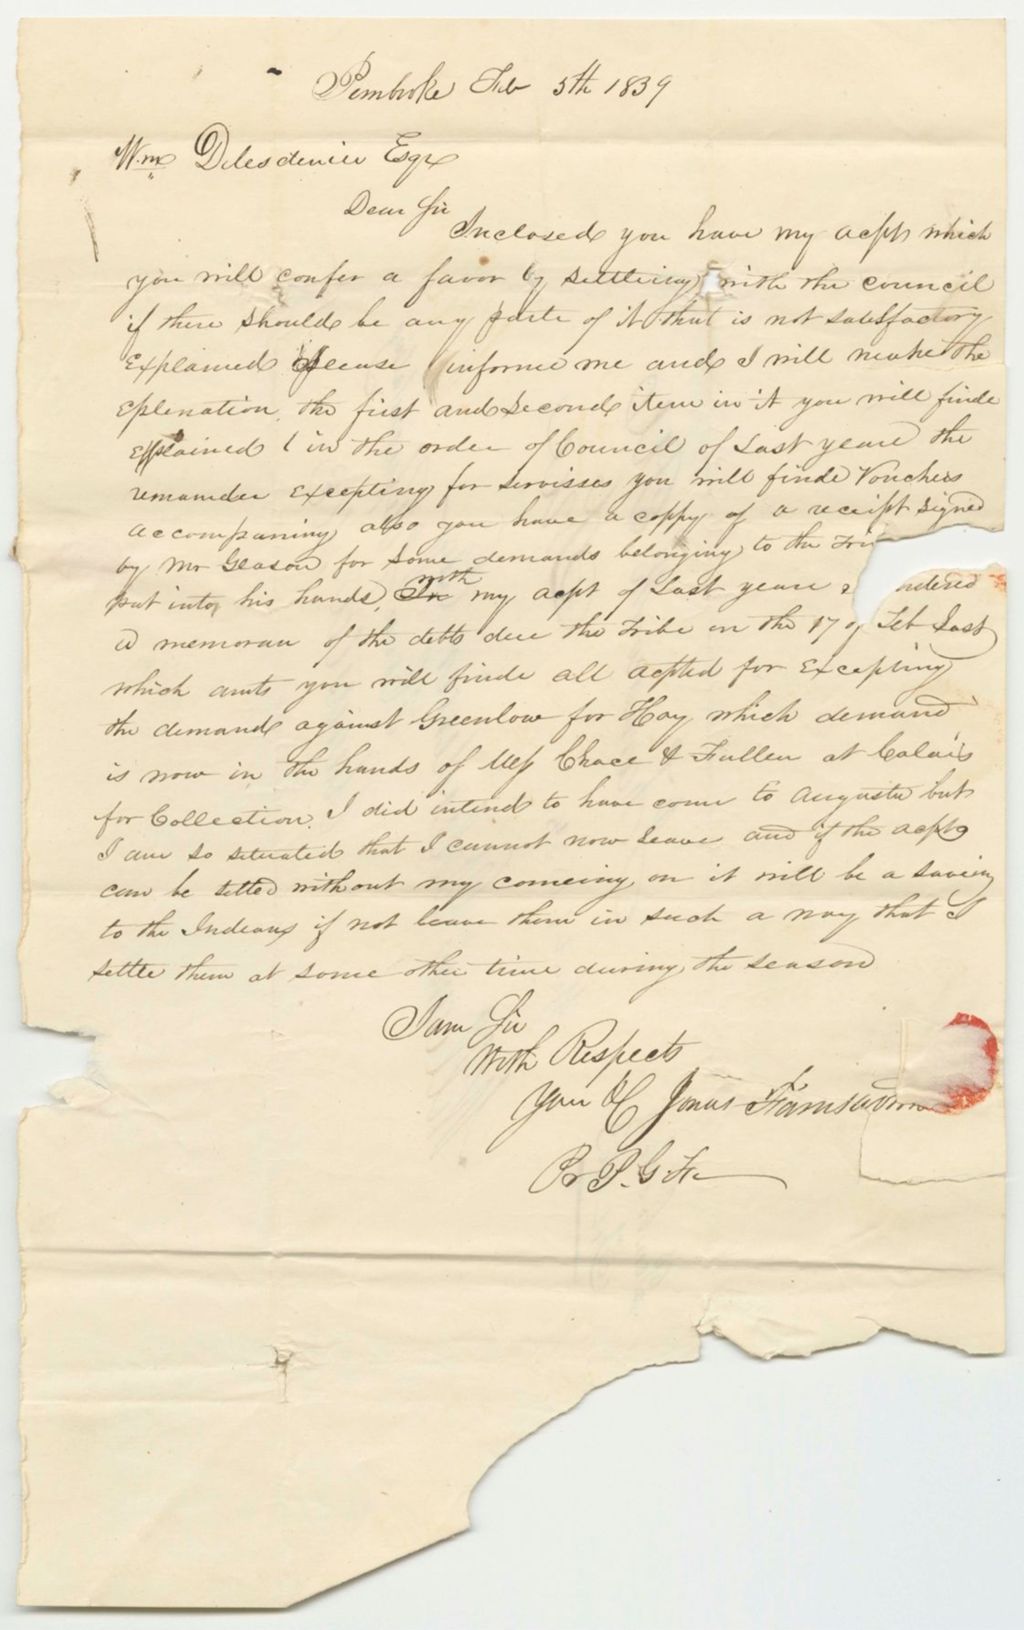 Pembroke Feb 5th 1839
Wm Delesdernier Esqr
Dear Sir
Inclosed you have my acpts which
you will confer a favor by settleing with the council
if there should be any parte of it that is not satesfactory
Explained please informe me and I will make the
Eplenation, the first and Second item in it you will finde
explained in the order of Council of Last yeare the
remainder Excepting for Servisses you will finde Vouchers
accompaning also you have a coppy of a receipt Signed
by Mr Gleason for some demands belonging to the Tri
put into his hands, with my acpt of Last yeare ndered
a memoran of the debts due the Tribe on the 17 of Feb Last
which amts you will finde all acpted for Excepting
the demand against Greenlow for Hay which demand
is now in the hands of Mess Chace & Fuller at Calais
for Collection. I did intend to have come to Augusta but
I am so setuated that I cannot now Leave and if the acpts
can be setled without my comeing on it will be a Saveing
to the Indians if not leave them in such a way that I
settle them at some other time dureing the season
I am Sir
With Respects
Jonas Farnsworth
Pr P. G. F.